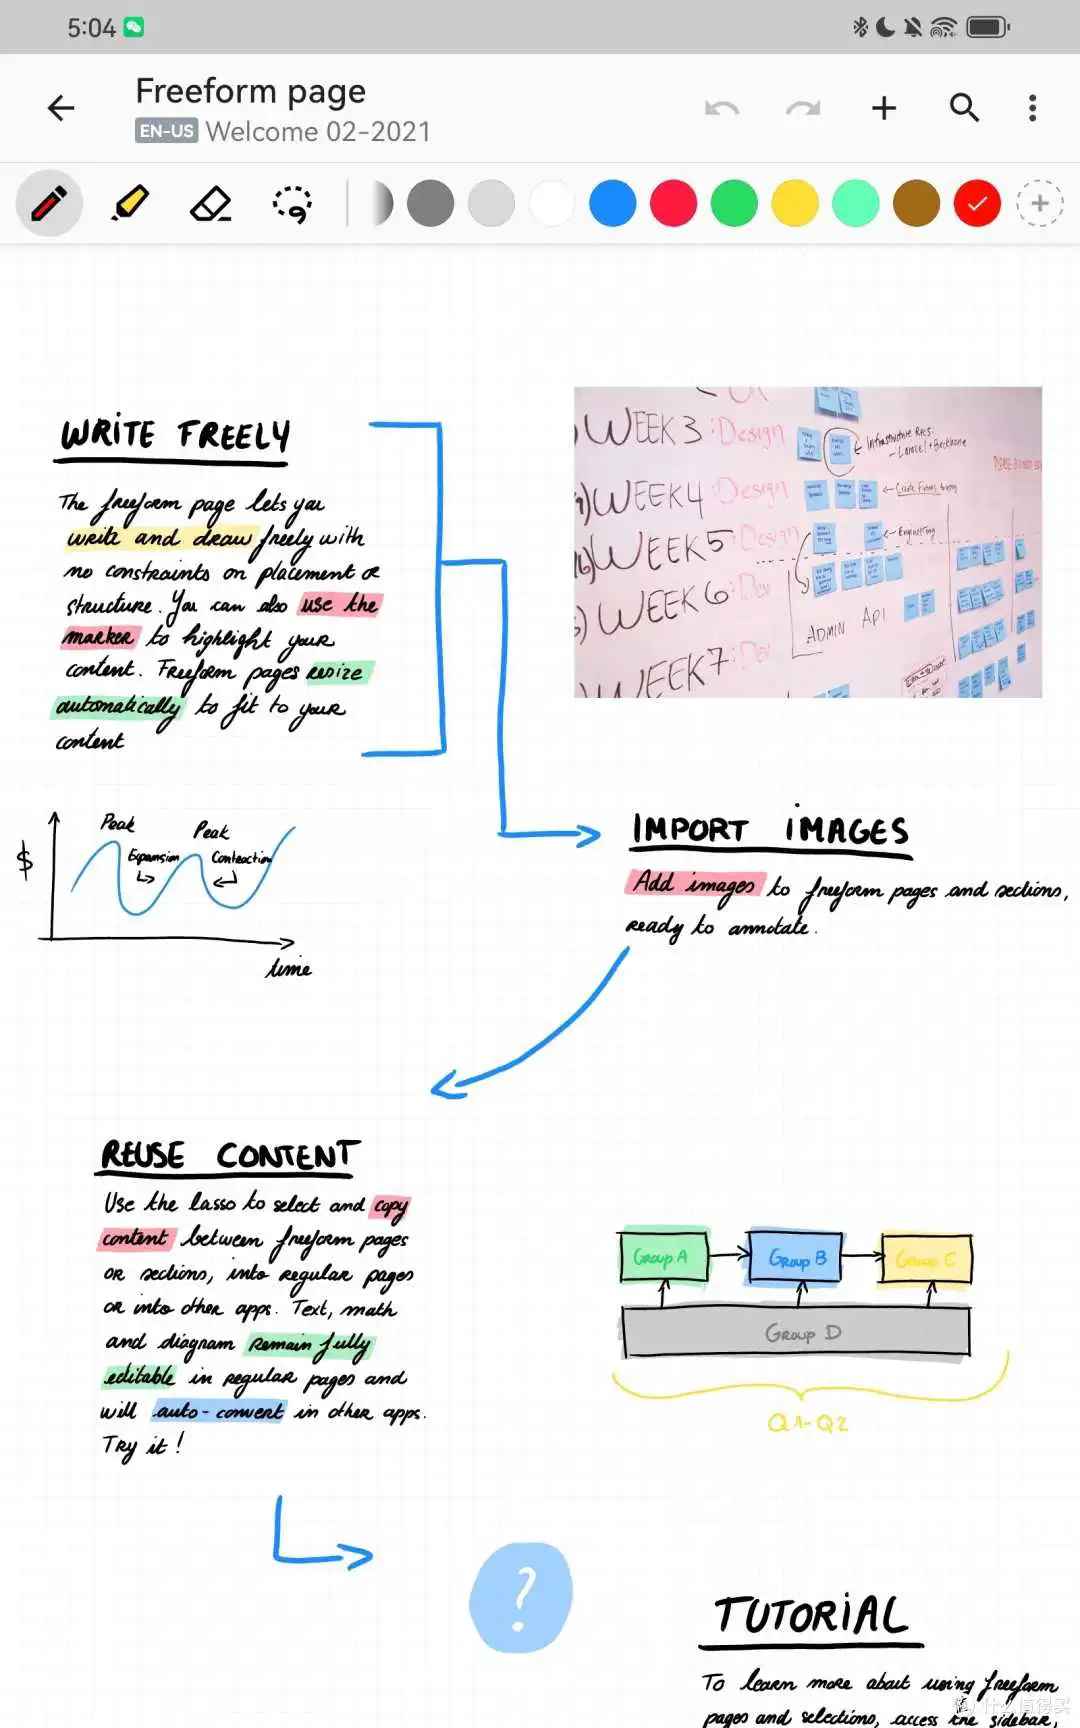 5:04
Freeform page
EN-US Welcome 02-2021
WRITE FREELY
The freeform page lets you
write and draw freely with
no constraints on placement or
structure. You can also use the
marker to highlight your
content. Freeform pages resize
automatically to fit to your
content
WEEK 3 :Design
Infrastructure Recs:
- Laravel + Backbone
WEEK 4 :Design
WEEK 5 :Design
Engineering
WEEK 6 :Dev
ADMIN API
WEEK 7 :Dev
$
Peak
Peak
Expansion
Contraction
time
IMPORT IMAGES
Add images to freeform pages and sections,
ready to annotate.
REUSE CONTENT
Use the lasso to select and copy
content between freeform pages
or sections, into regular pages
or into other apps. Text, math
and diagram remain fully
editable in regular pages and
will auto-convert in other apps.
Try it!
Group A
Group B
Group C
Group D
Q1-Q2
?
TUTORIAL
To learn more about using freeform
pages and selections, access the sidebar,
值 什么值得买